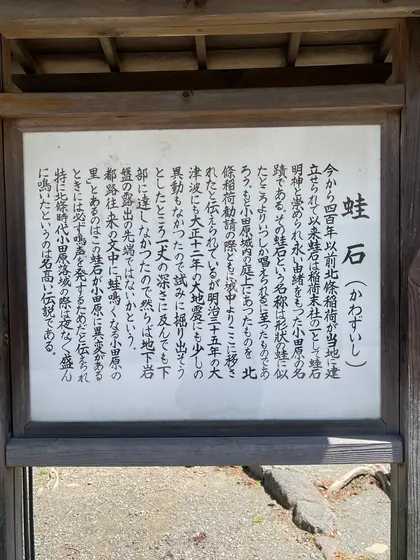 蛙石（かわずいし）
今から四百年以前北條稲荷が当地に建
立せられて以来蛙石は稲荷末社の一として蛙石
明神と崇められ永い由緒をもった小田原の名
蹟である。その蛙石という名称は形状の蛙に似
たところよりいつしか唱えられるに至ったものであ
ろう。もと小田原城内の庭上にあったものを、北
條稲荷勧請の際ともに城中よりここに移さ
れたと伝えられているが明治三十五年の大
津波にも大正十二年の大地震にも少しの
異動もなかったので試みに掘り出そう
としたところ一丈の深さに及んでも下
部に達しなかったので、然らば地下岩
盤の露出の先端ではないかという。
都路往来の文中に「蛙鳴くなる小田原の
里」とあるのはこの蛙石が小田原に異変がある
ときには必ず鳴声を発するためだと伝えられ
特に北條時代小田原落城の際は夜なく盛ん
に鳴いたというのは名高い伝説である。